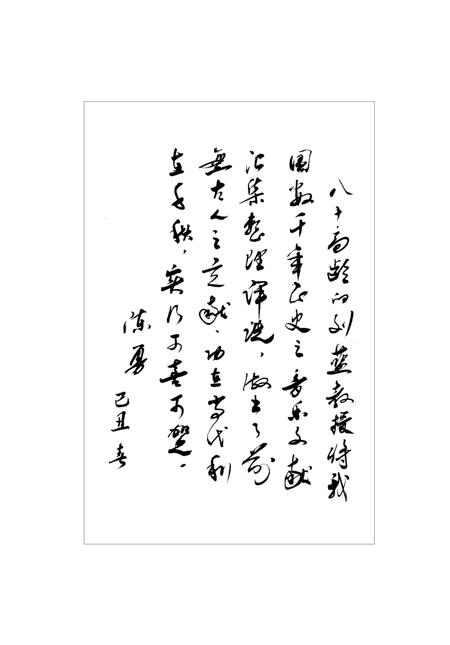 八十高齡的刘蓝教授将我
國数千年正史之音乐文献
汇集整理译说，做出了前
無古人之贡献，功在当代利
在千秋，实乃可喜可贺。
陈勇
己丑春